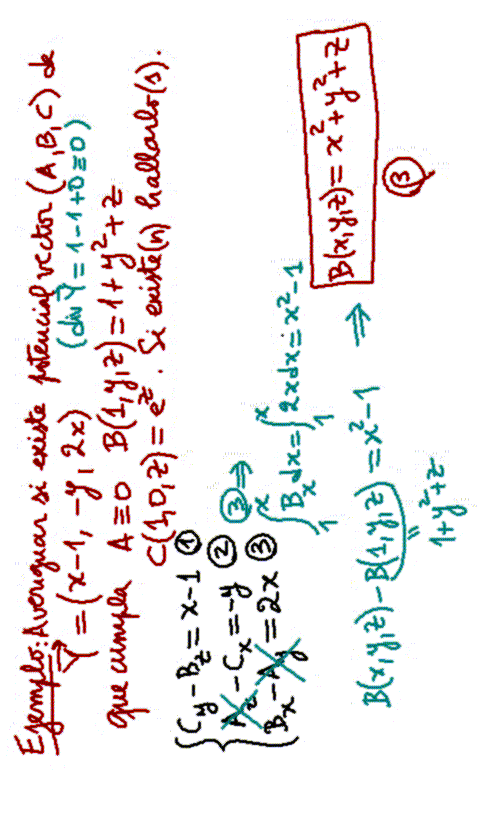 Ejemplo: Averiguar si existe potencial vector (A, B, C) de
V⃗ = (x-1, -y, 2x) (div V⃗ = 1-1+0≡0)
que cumpla A≡0 B(1,y,z)=1+y²+z
C(1,0,z)=e^z. Si existe(n) hallarlo(s).
C_y - B_z = x-1 ①
A_z - C_x = -y ②
B_x - A_y = 2x ③
③ ⇒ ∫₁ˣ B_x dx = ∫₁ˣ 2x dx = x²-1
B(x,y,z) - B(1,y,z) = x²-1 ⇒ B(x,y,z) = x²+y²+z
1+y²+z
③